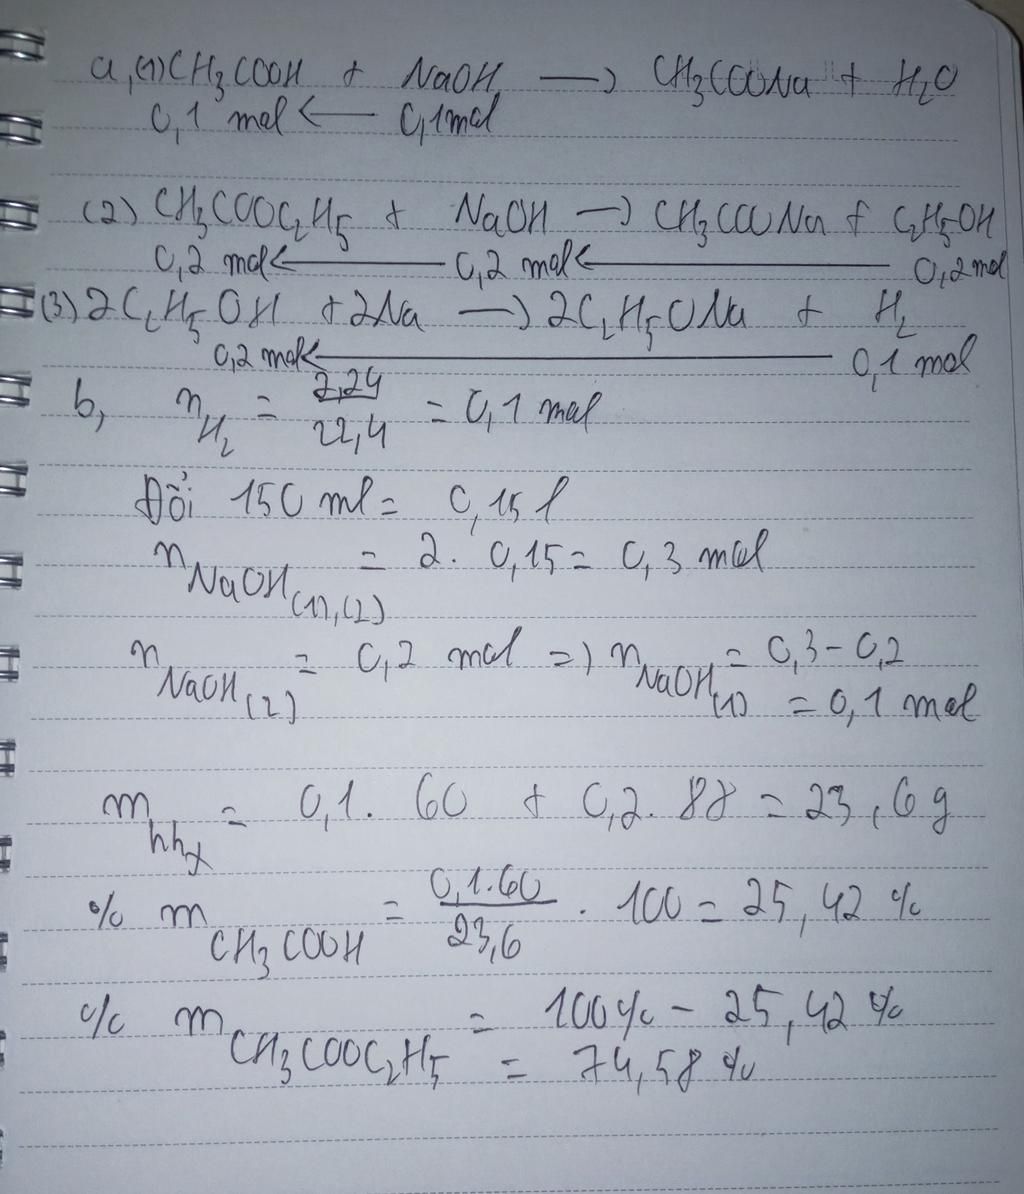 a, (1) CH3COOH + NaOH → CH3COONa + H2O
0,1 mol ← 0,1 mol
(2) CH3COOC2H5 + NaOH → CH3COONa + C2H5OH
0,2 mol ← 0,2 mol ← 0,2 mol
(3) 2C2H5OH + 2Na → 2C2H5ONa + H2
0,2 mol ← 0,1 mol
b, nH2 = 2,24/22,4 = 0,1 mol
Đổi 150 ml = 0,15 l
nNaOH(1),(2) = 2. 0,15 = 0,3 mol
nNaOH(2) = 0,2 mol => nNaOH(1) = 0,3 - 0,2
= 0,1 mol
mhhX = 0,1. 60 + 0,2. 88 = 23,6 g
% mCH3COOH = 0,1.60/23,6 . 100 = 25,42 %
% mCH3COOC2H5 = 100% - 25,42 %
= 74,58 %